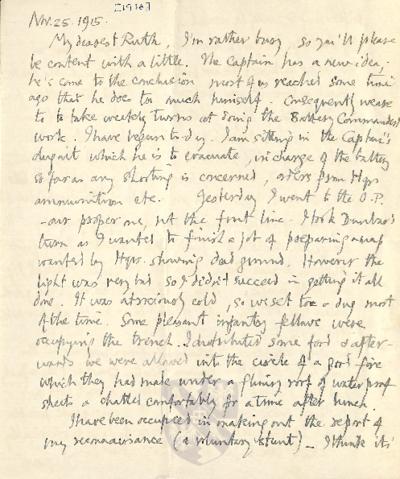 [1916?]
Nov. 25. 1915.
My dearest Ruth, I'm rather busy so you'll please
be content with a little. The Captain has a new idea.
he's come to the conclusion most of us reached some time
ago that he does too much himself. Consequently we are
to take weekly turns at doing the Battery Commanders
work. I have begun to-day. I am sitting in the Captain's
dugout which he is to evacuate, in charge of the battery
so far as any shooting is concerned, orders from Hqrs
ammunition etc. Yesterday I went to the O.P.
- our proper one, not the front line. I took Dunbar's
turn as I wanted to finish a job of preparing a map
wanted by Hqrs. showing dead ground. However the
light was very bad, so I didn't succeed in getting it all
done. It was atrociously cold, so we set to & dug most
of the time. Some pleasant infantry fellows were
occupying the trench. I distributed some food & after-
wards we were allowed into the circle of a good fire
which they had made under a roof of waterproof
sheets & chatted comfortably for a time after lunch.
I have been occupied in making out the report of
my reconnaissance (a voluntary stunt) - I think it's